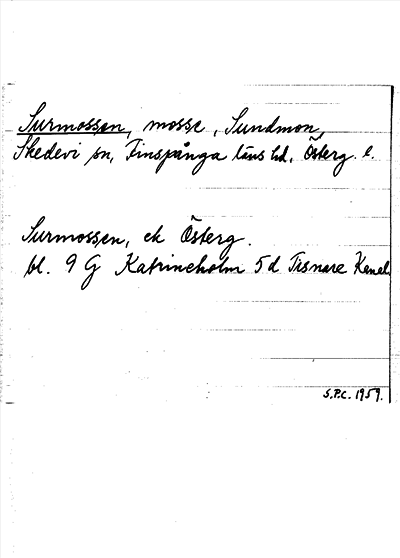 Surmossen, mosse, Sundmon,
Skedevi sn, Finspånga läns hd, Österg. l.
Surmossen, ek Österg.
bl. 9 G Katrineholm 5d Tisnare Kanal
S.P.C. 1959.